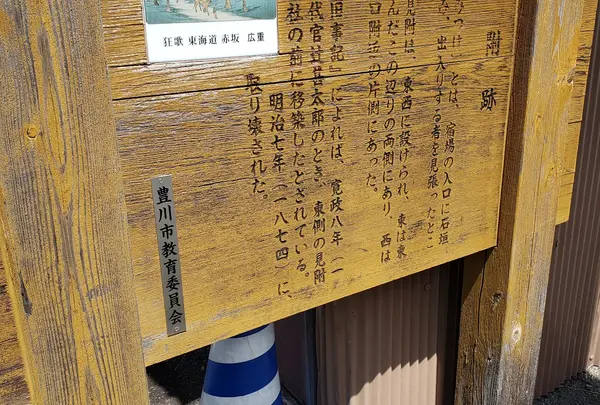 附　跡
つけ」とは、宿場の入口に石垣
、出入りする者を見張ったとこ
見附は、東西に設けられ、東は東
んだこの辺りの両側にあり、西は
口附近の片側にあった。
旧事記』によれば、寛政八年（一
代官辻甚太郎のとき、東側の見附
社の前に移築したとされている。
明治七年（一八七四）に、
取り壊された。
狂歌 東海道 赤坂 広重
豊川市教育委員会